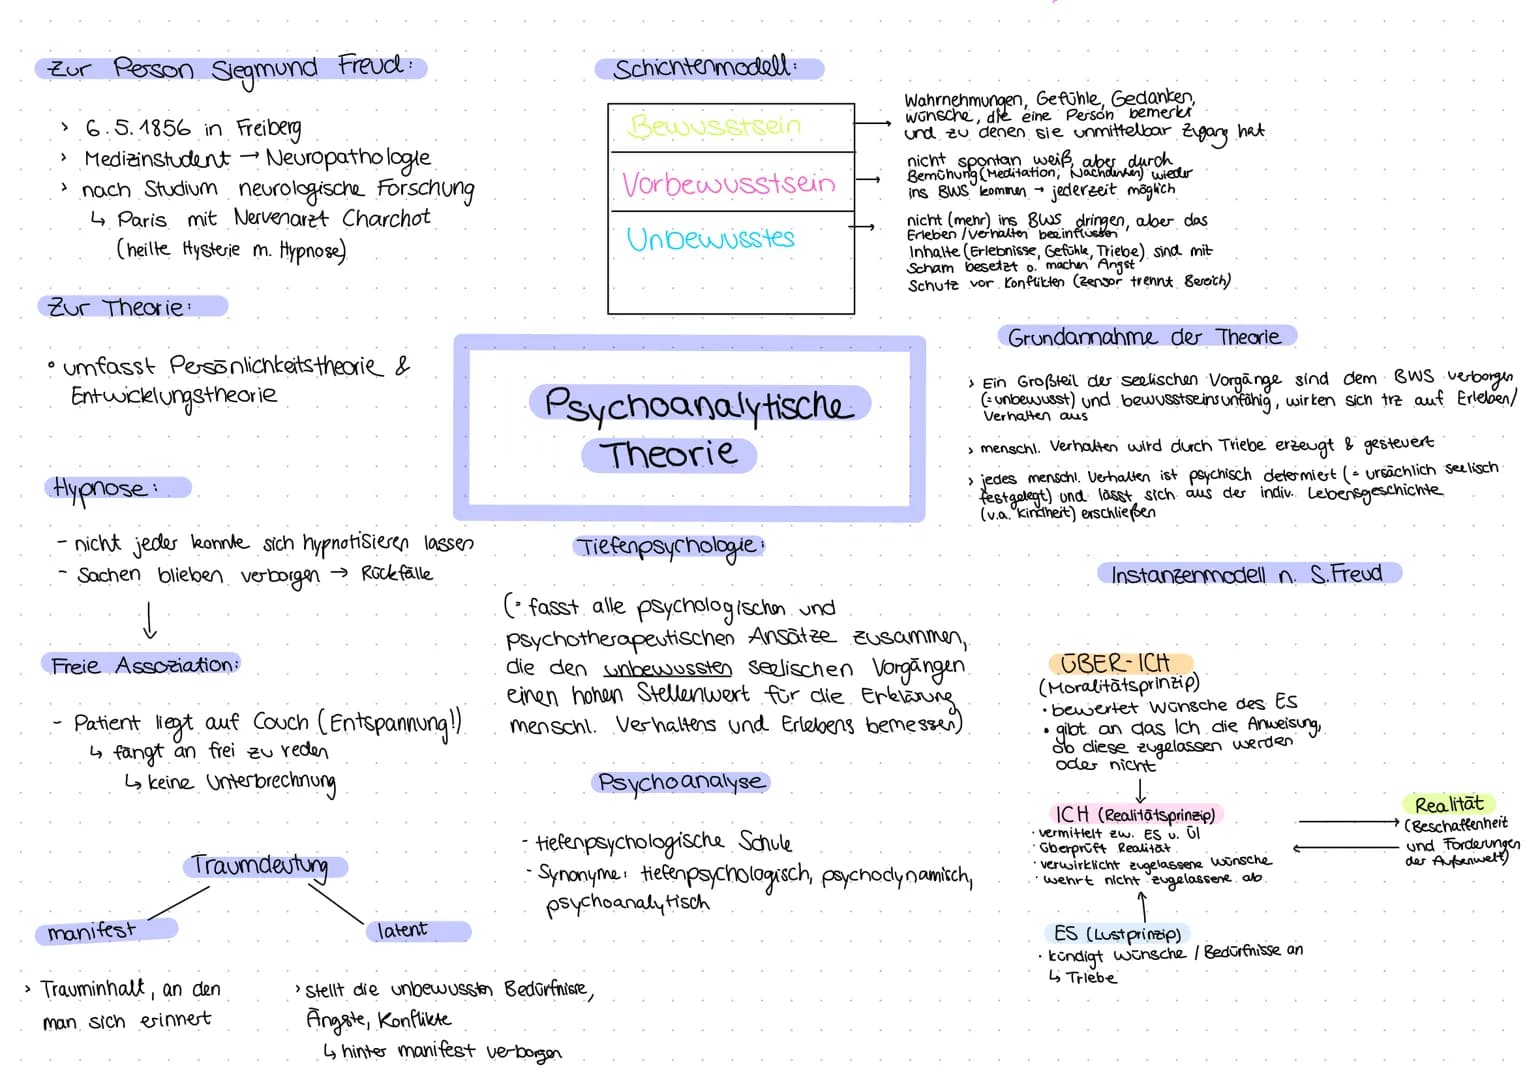 Zur Person Siegmund Freud:
> 6.5.1856 in Freiberg
> Medizinstudent → Neuropathologie
> nach Studium neurologische Forschung
↳ Paris mit Nervenarzt Charchot
(heilte Hysterie m. Hypnose)
Zur Theorie:
• umfasst Persönlichkeitstheorie &
Entwicklungstheorie
Hypnose:
- nicht jeder konnte sich hypnotisieren lassen
- Sachen blieben verborgen → Rückfälle
↓
Freie Assoziation:
- Patient liegt auf Couch (Entspannung!)
↳ fängt an frei zu reden
↳ keine Unterbrechnung
Traumdeutung
manifest
> Trauminhalt, an den
man sich erinnert
latent
> stellt die unbewussten Bedürfnisse,
Ängste, Konflikte
↳ hinter manifest verborgen
Schichtenmodell:
Bewusstsein
→ Wahrnehmungen, Gefühle, Gedanken,
Wünsche, die eine Person bemerkt
und zu denen sie unmittelbar Zugang hat
Vorbewusstsein
→ nicht spontan weiß, aber durch
Bemühung (Meditation, Nachdenken) wieder
ins BWS kommen → jederzeit möglich
Unbewusstes
→ nicht (mehr) ins BWS dringen, aber das
Erleben/Verhalten beeinflussen
Inhalte (Erlebnisse, Gefühle, Triebe) sind mit
Scham besetzt o. machen Angst
Schutz vor Konflikten (Zensor trennt Bereich)
Psychoanalytische
Theorie
Tiefenpsychologie:
(= fasst alle psychologischen und
psychotherapeutischen Ansätze zusammen,
die den unbewussten seelischen Vorgängen
einen hohen Stellenwert für die Erklärung
menschl. Verhaltens und Erlebens bemessen)
Psychoanalyse
- tiefenpsychologische Schule
- Synonyme: tiefenpsychologisch, psychodynamisch,
psychoanalytisch
Grundannahme der Theorie
> Ein Großteil der seelischen Vorgänge sind dem BWS verborgen
(=unbewusst) und bewusstseinsunfähig, wirken sich trz auf Erleben/
Verhalten aus
> menschl. Verhalten wird durch Triebe erzeugt & gesteuert
> jedes menschl. Verhalten ist psychisch determiert (= ursächlich seelisch
festgelegt) und lässt sich aus der indiv. Lebensgeschichte
(v.a. Kindheit) erschließen
Instanzenmodell n. S. Freud
ÜBER-ICH
(Moralitätsprinzip)
• bewertet Wünsche des ES
• gibt an das Ich die Anweisung,
ob diese zugelassen werden
oder nicht
ICH (Realitätsprinzip)
• vermittelt zw. ES u. ÜI
• überprüft Realität
• verwirklicht zugelassene Wünsche
• wehrt nicht zugelassene ab
Realität
(Beschaffenheit
und Forderungen
der Außenwelt)
ES (Lustprinzip)
• kündigt Wünsche / Bedürfnisse an
↳ Triebe